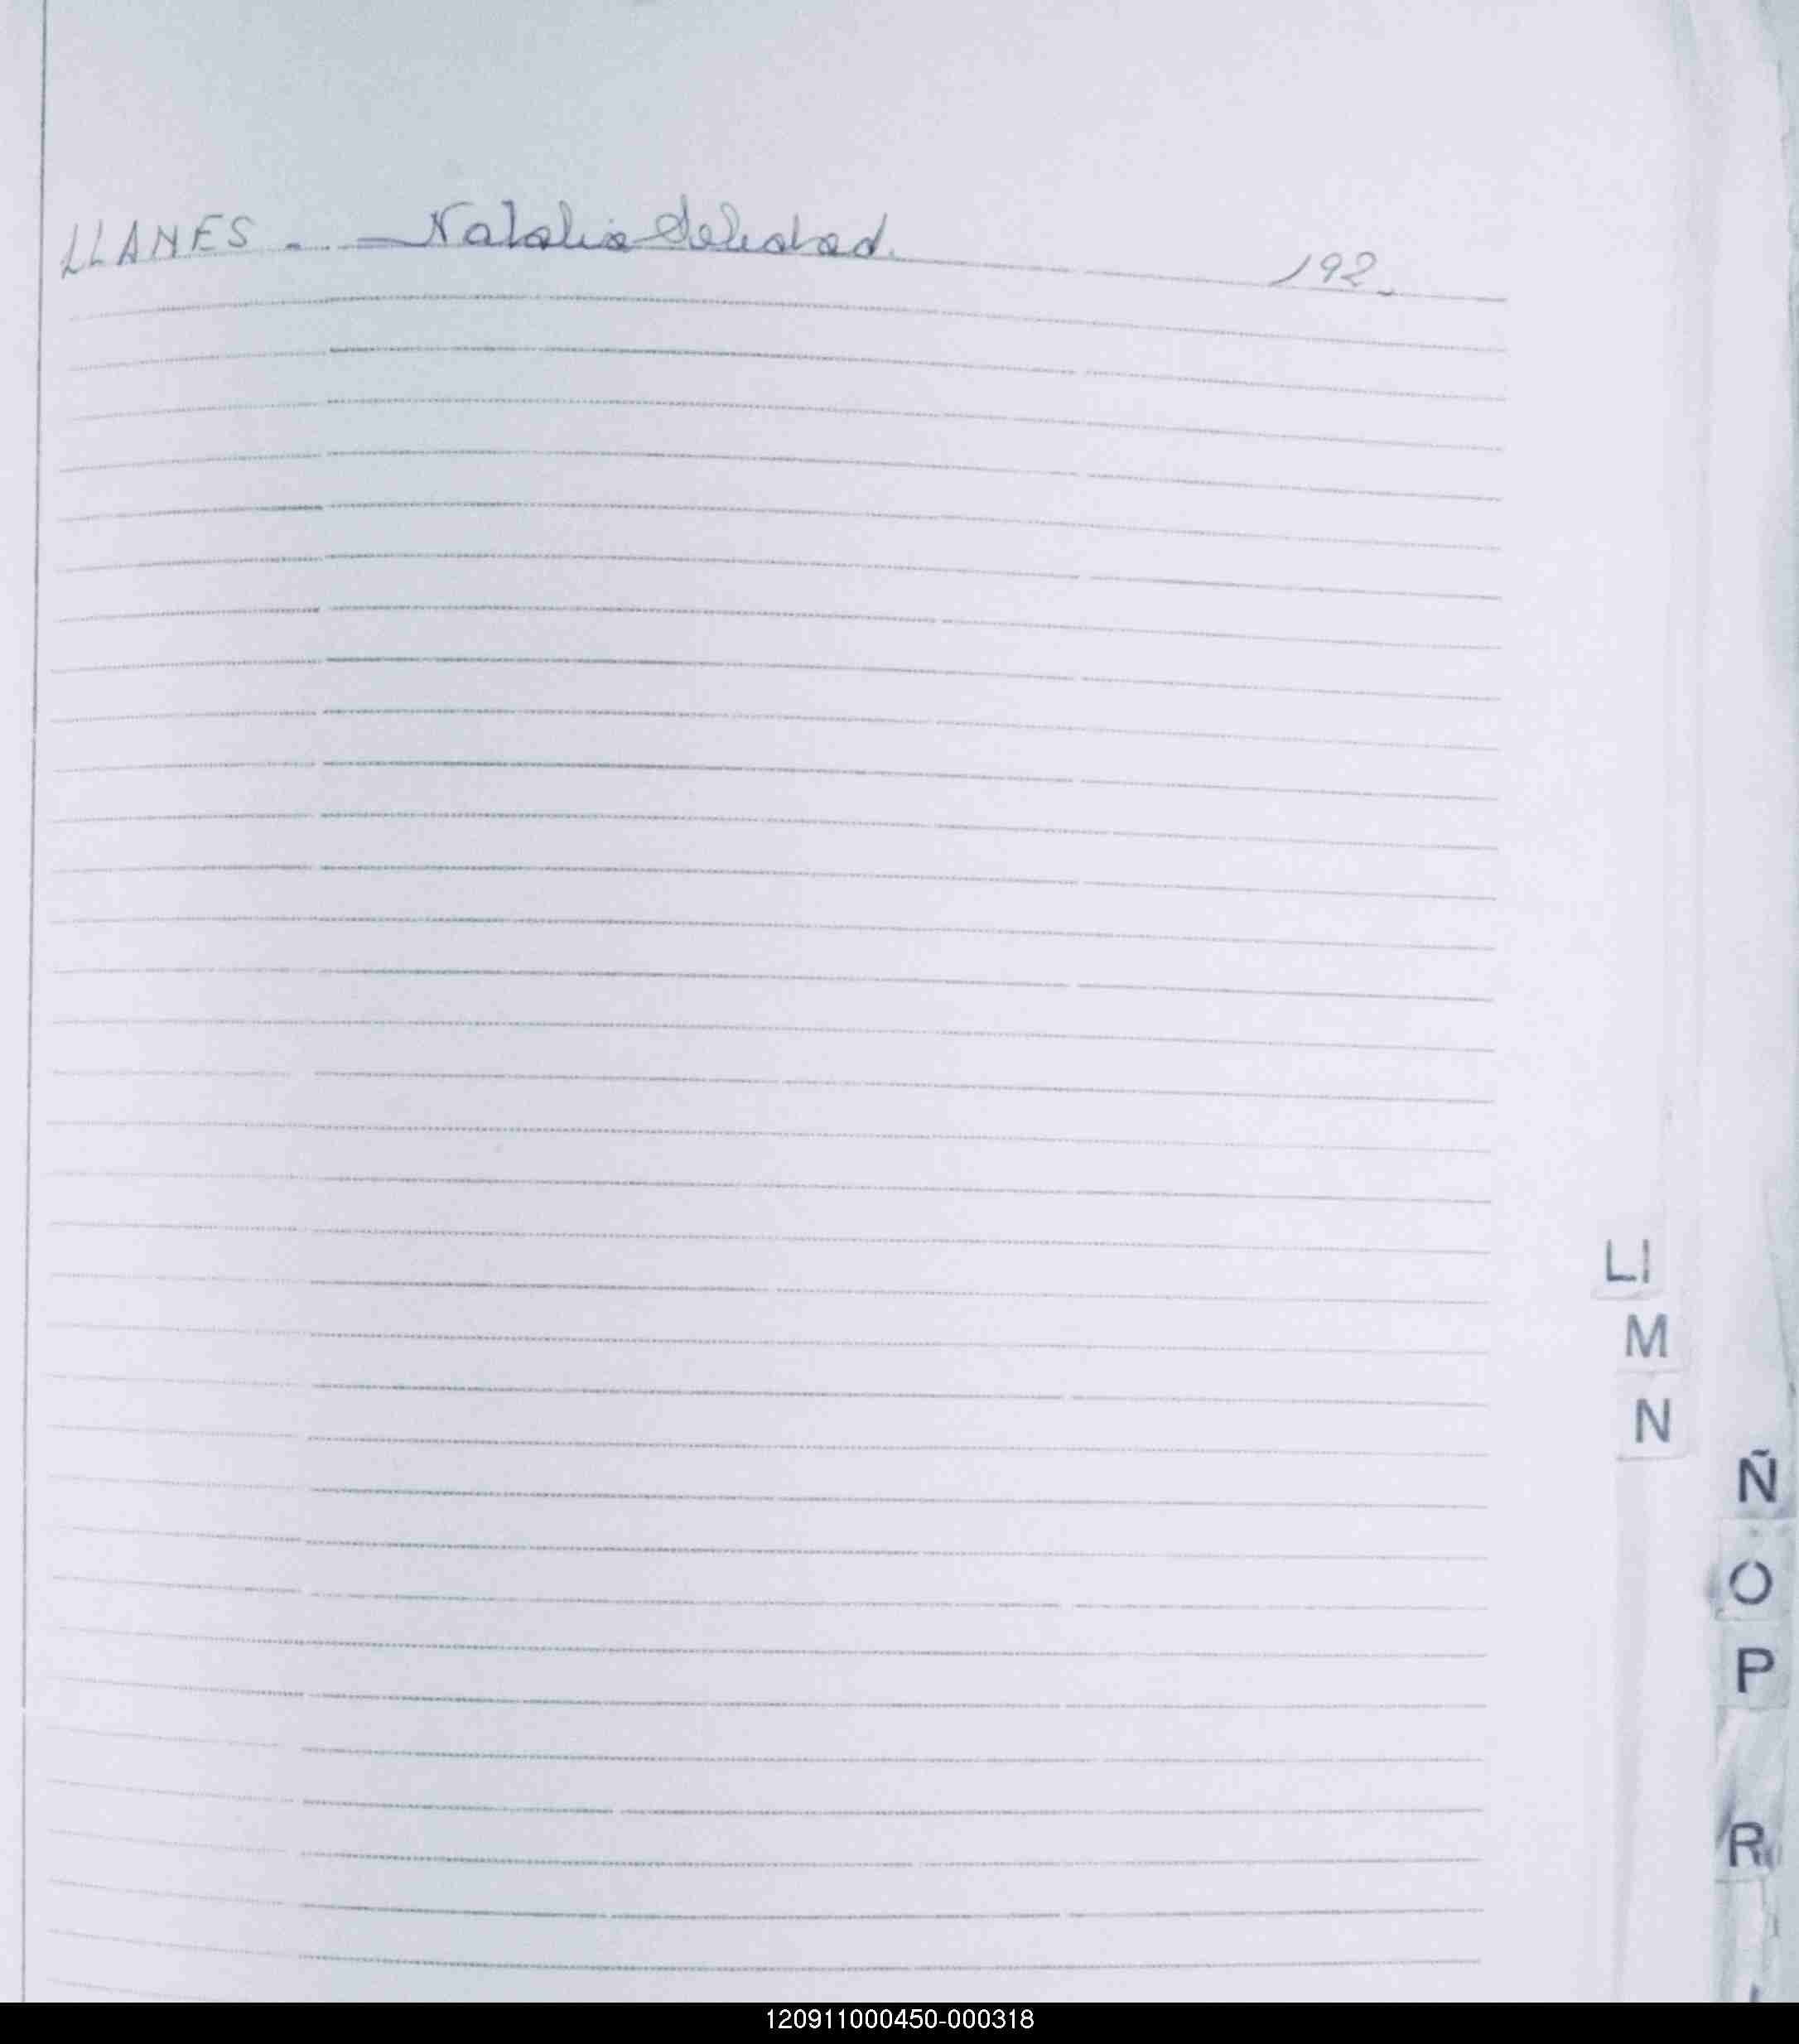 LLANES. - Natalia Soledad. 192.
Ll
M
N
Ñ
O
P
R
120911000450-000318